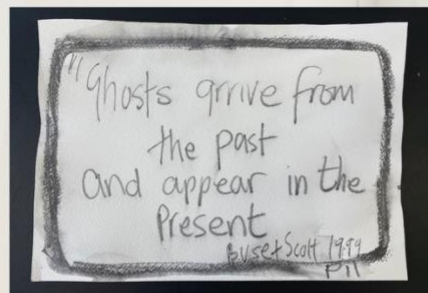 "Ghosts arrive from
the past
and appear in the
Present
Buse + Scott 1999
P11